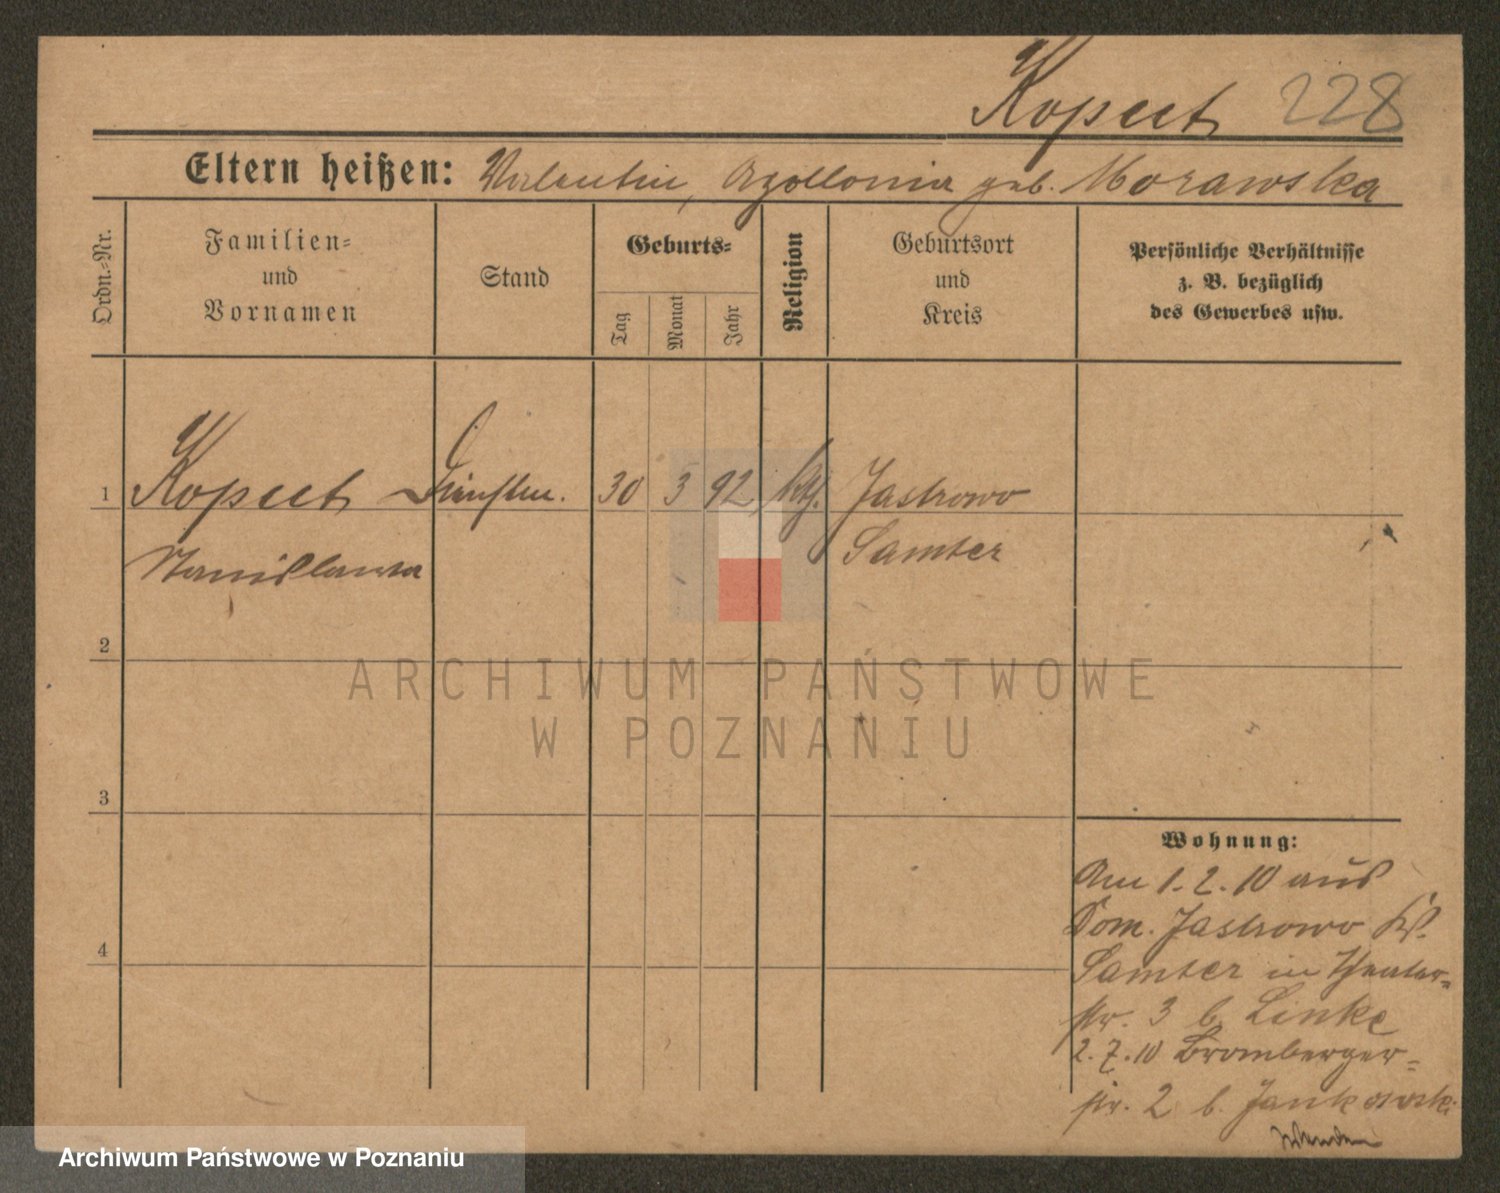 Kopeet 228
Eltern heißen: Valentin, Apollonia geb. Morawska
Ordn.-Nr.
Familien-
und
Vornamen
Stand
Geburts-
Tag
Monat
Jahr
Religion
Geburtsort
und
Kreis
Persönliche Verhältnisse
z. B. bezüglich
des Gewerbes usw.
1 30 3 92 kth. Jastrowo
Stanislawa Samter
2
3
4
ARCHIWUM PAŃSTWOWE
W POZNANIU
Wohnung:
Am 1.2.10 aus
Dom. Jastrowo Kr.
Samter in Theater-
str. 3 b. Linke
2.7.10 Bromberger-
str. 2 b. Jankowski
Wenden
Archiwum Państwowe w Poznaniu